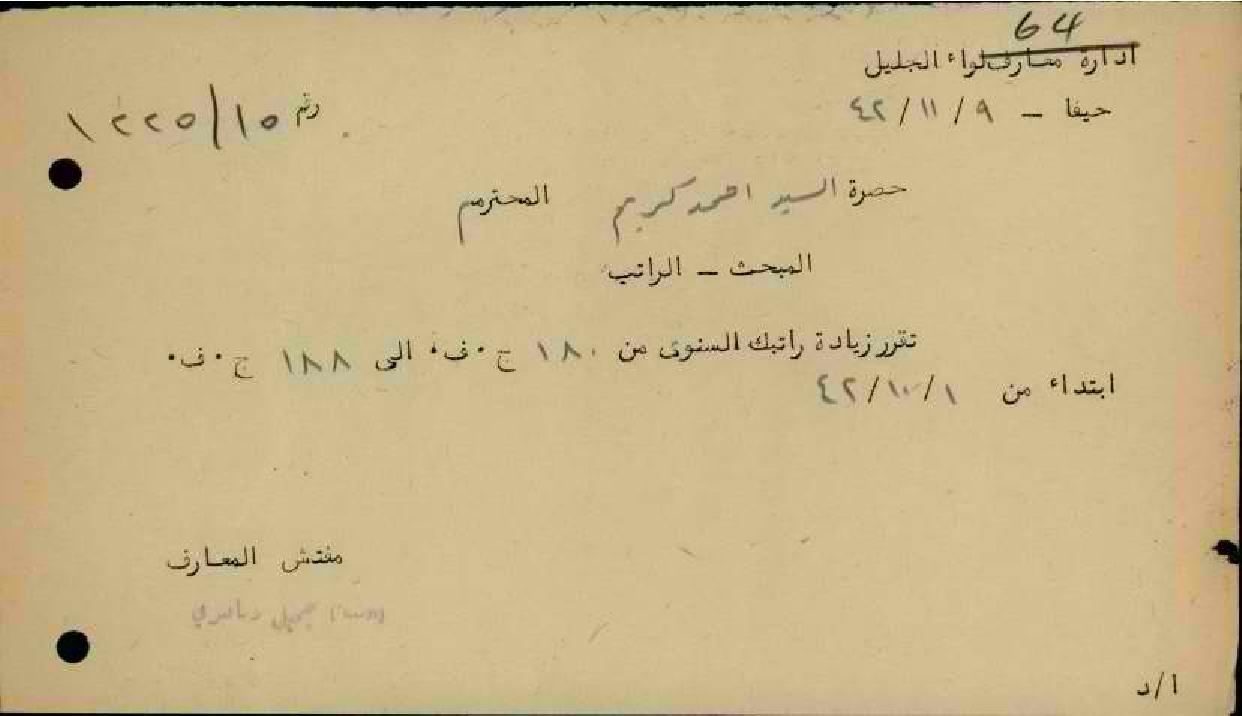 64
ادارة معارف لواء الجليل
حيفا – ٩ / ١١ / ٤٢
رقم ١٥/١٢٢٥
حضرة السيد احمد كريم المحترم
المبحث – الراتب
تقرر زيادة راتبك السنوى من ١٨٠ ج.ف. الى ١٨٨ ج.ف.
ابتداء من ١/١٠/٤٢
مفتش المعارف
جميل
ا/د